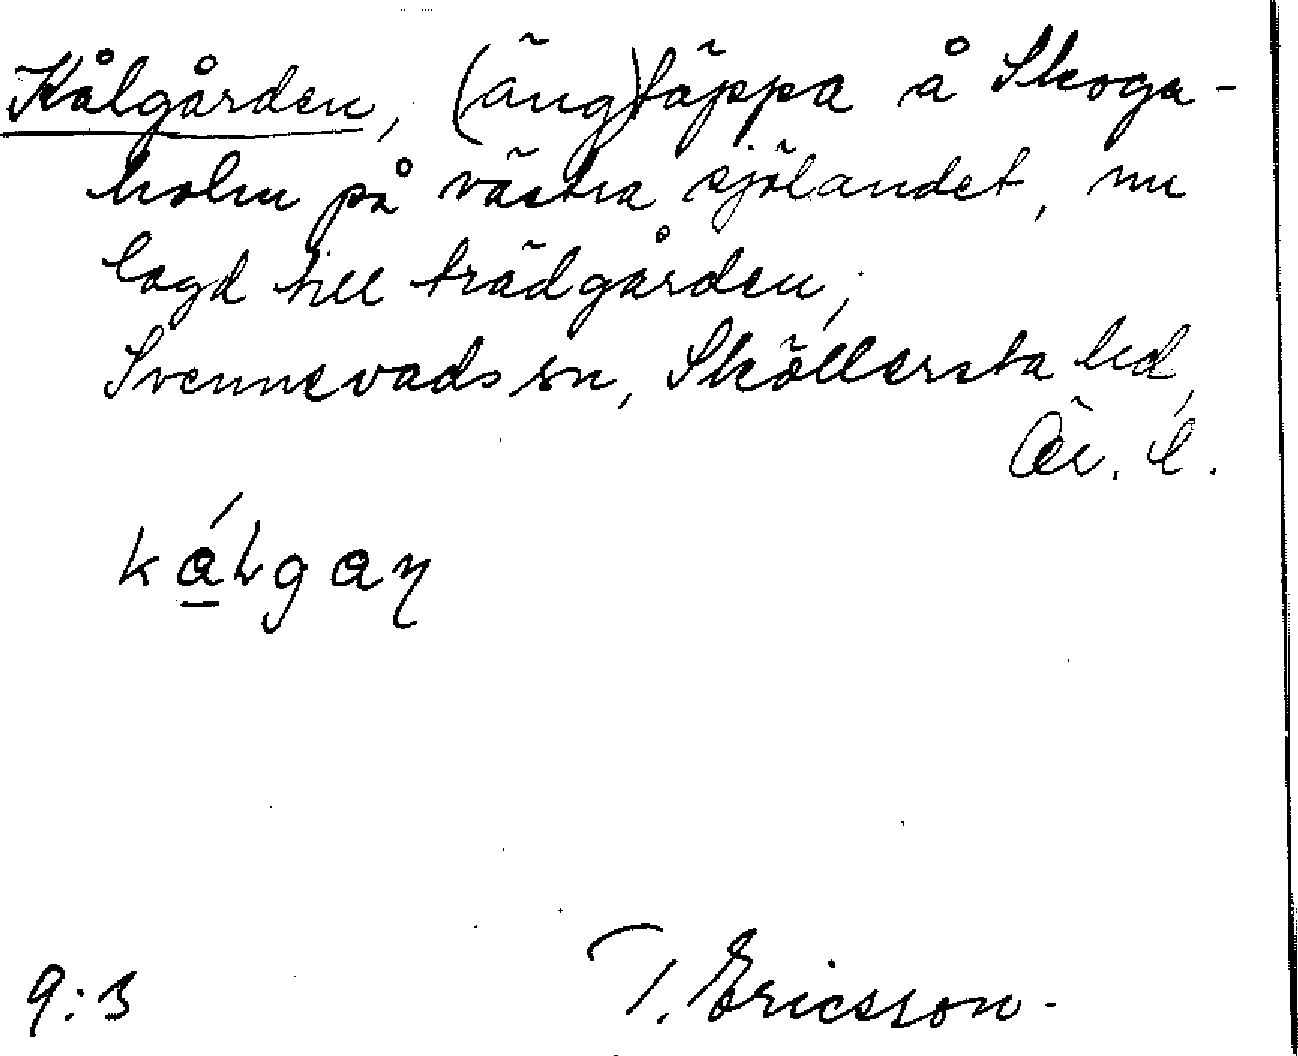 Kålgården, (äng)täppa å Skoga-
holm på västra sjölandet, nu
lagd till trädgården;
Svennevads sn, Sköllersta hd,
Ör. l.
9:3
T. Ericsson.